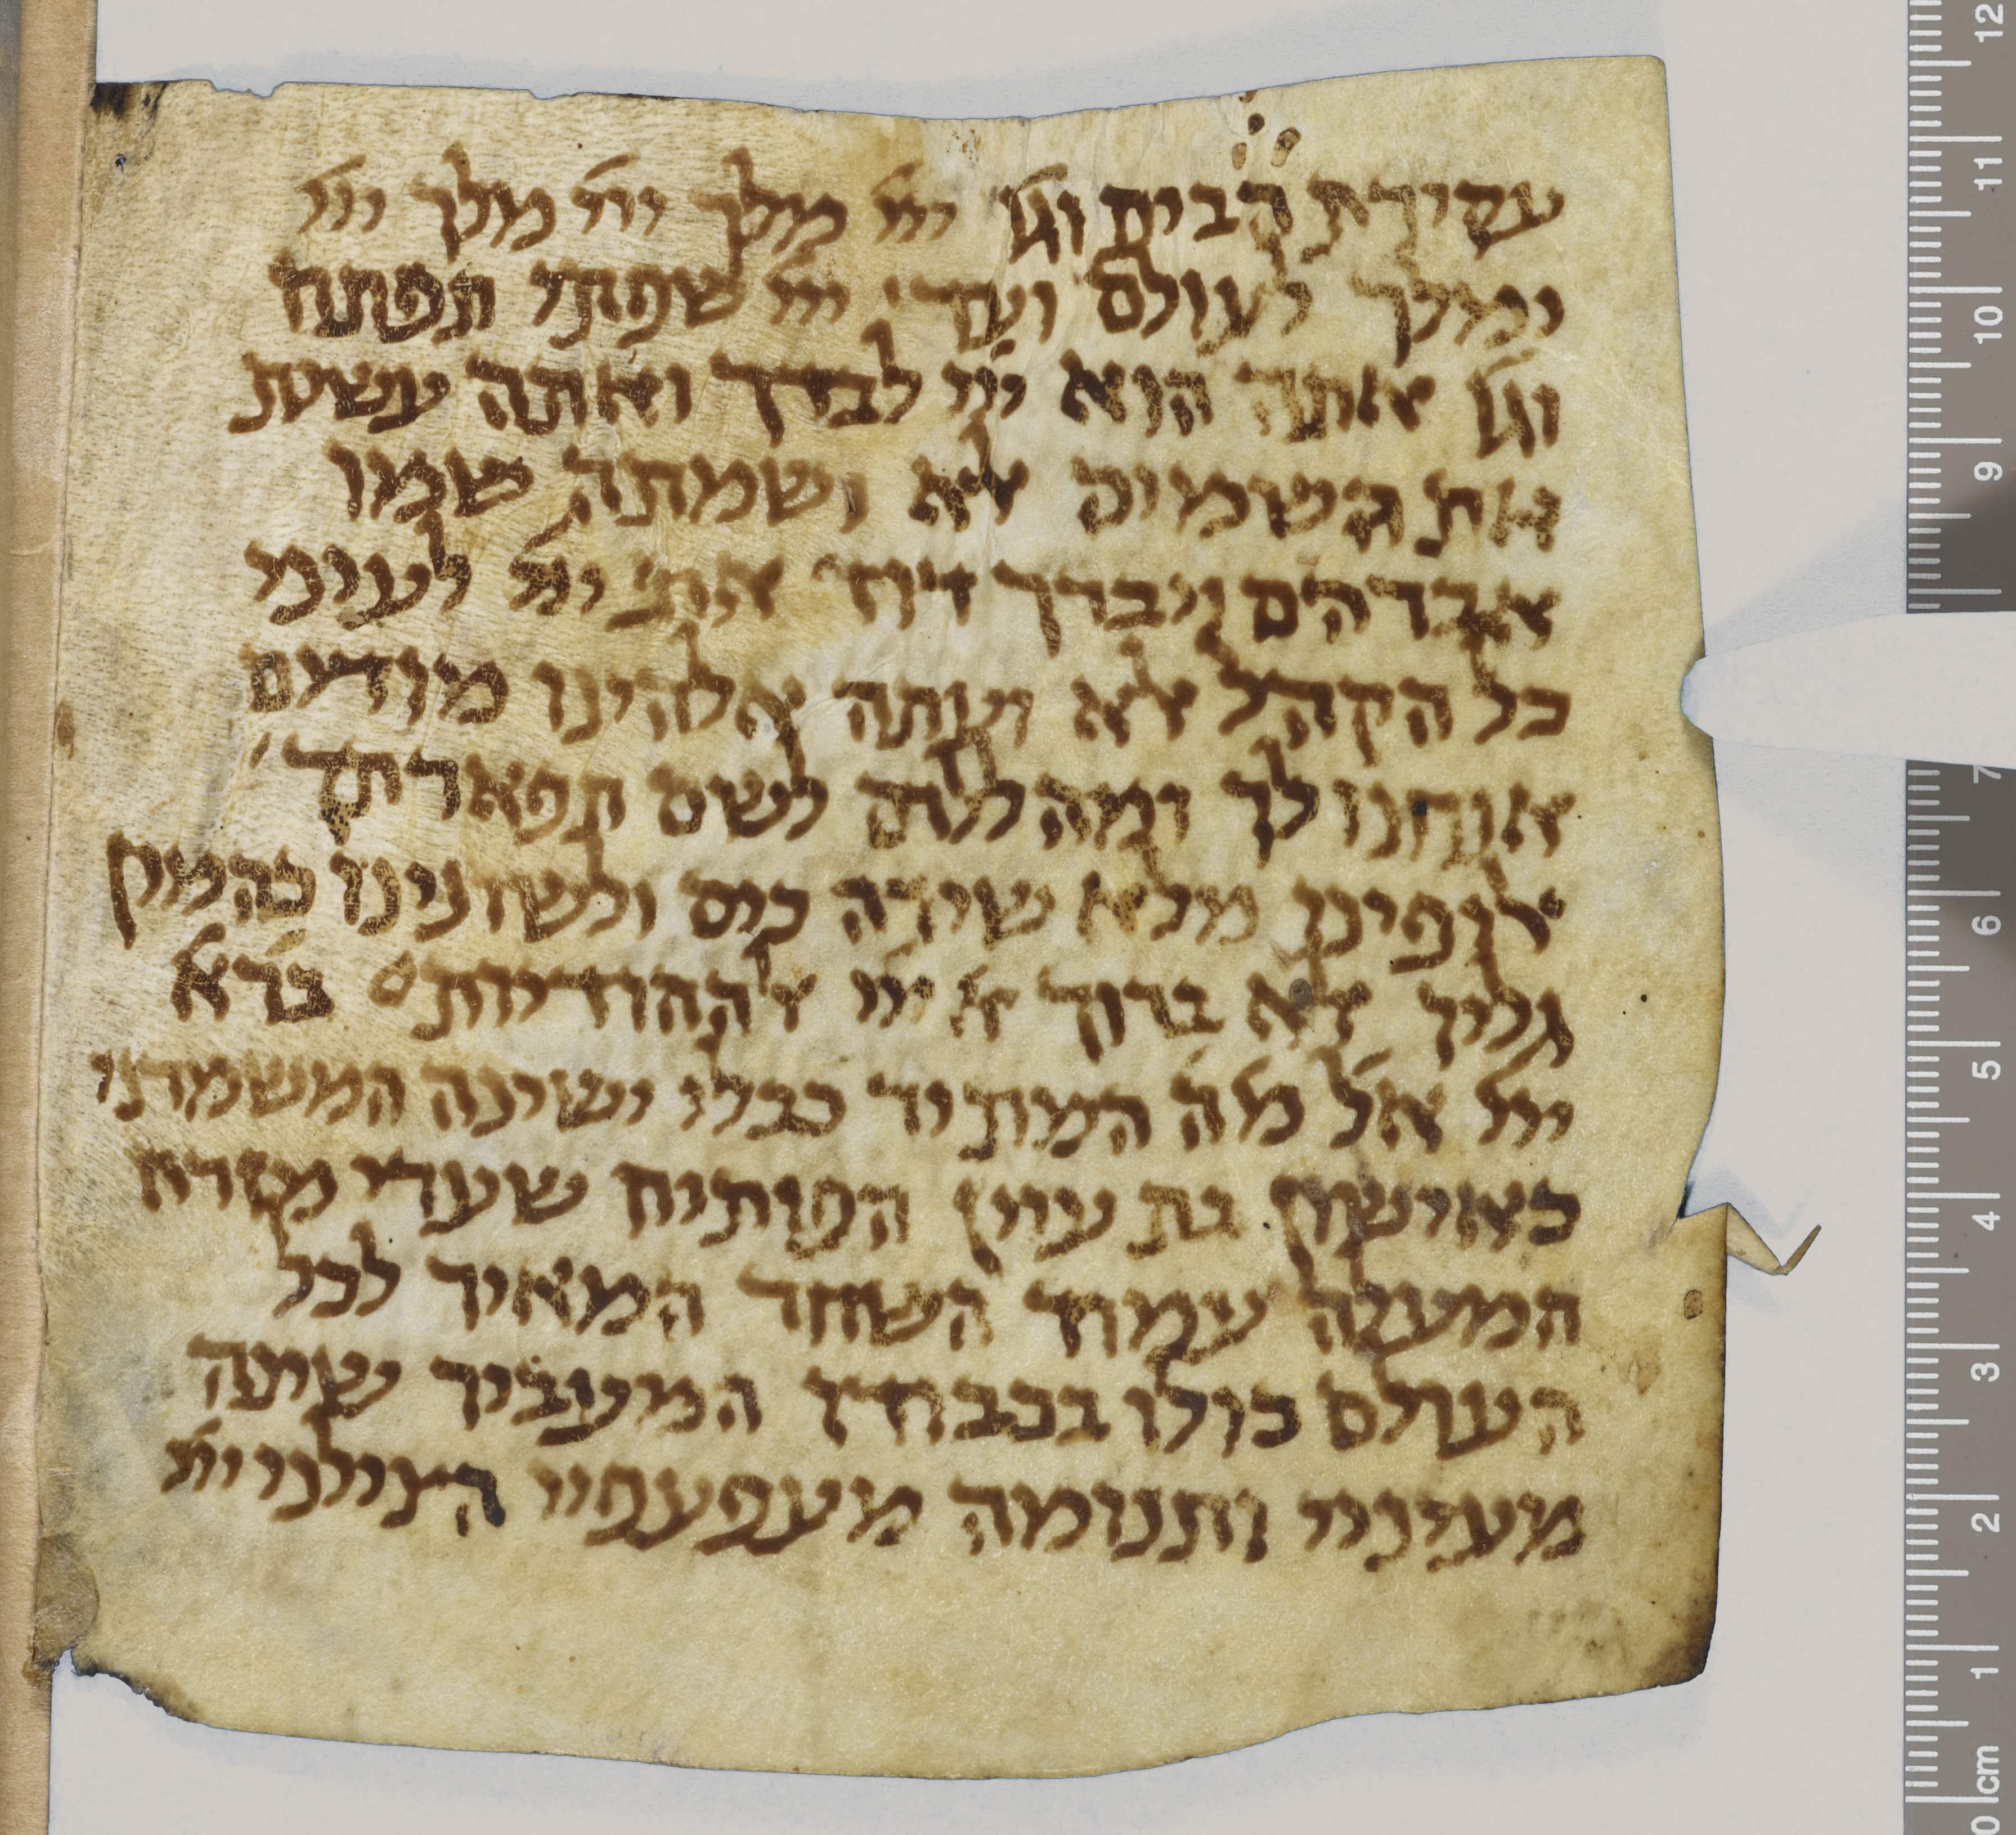 עקירת הבית וגו ייי מלך ייי מלך ייי
ימלך לעולם ועד ייי שפתי תפתח
וגו אתה הוא ייי לבדך ואתה עשית
את השמים לא ושמתה שמו
אברהם ויברך דוד את ייי לעינ
כל הקהל לא ועתה אלהינו מודים
אנחנו לך ומהללים לשם תפארתך
אלו פינו מלא שירה כים ולשונינו כהמון
גליו לא ברוך א ייי ההודיות ברא
ייי אל מה המתיר כבלי ישינה המשמרני
כאישון בת עיין הפותיח שערי מזרח
המעלה עמוד השחר המאיר לכל
העולם כולו בכבודו המעביר שינה
מעיניי ותנומה מעפעפיי הצילני ייי
12
11
10
9
7
6
5
4
3
2
1
0 cm